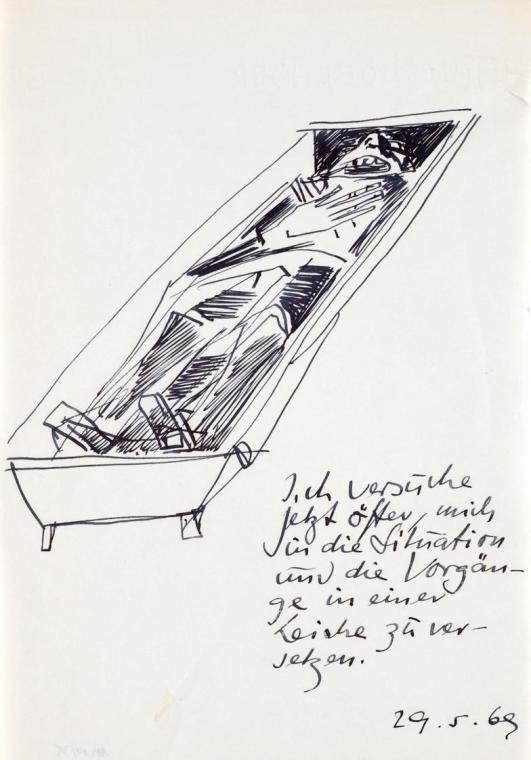 Ich versuche
jetzt öfter, mich
in die Situation
und die Vorgän-
ge in einer
Leiche zu ver-
setzen.
29.5.69